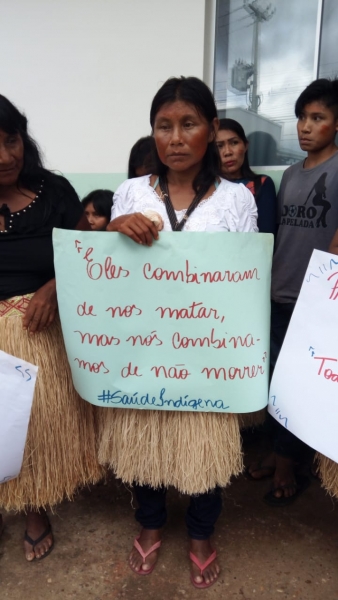 "Eles combinaram
de nos matar,
mas nós combina-
mos de não morrer"
#SaúdeIndígena
"Toa